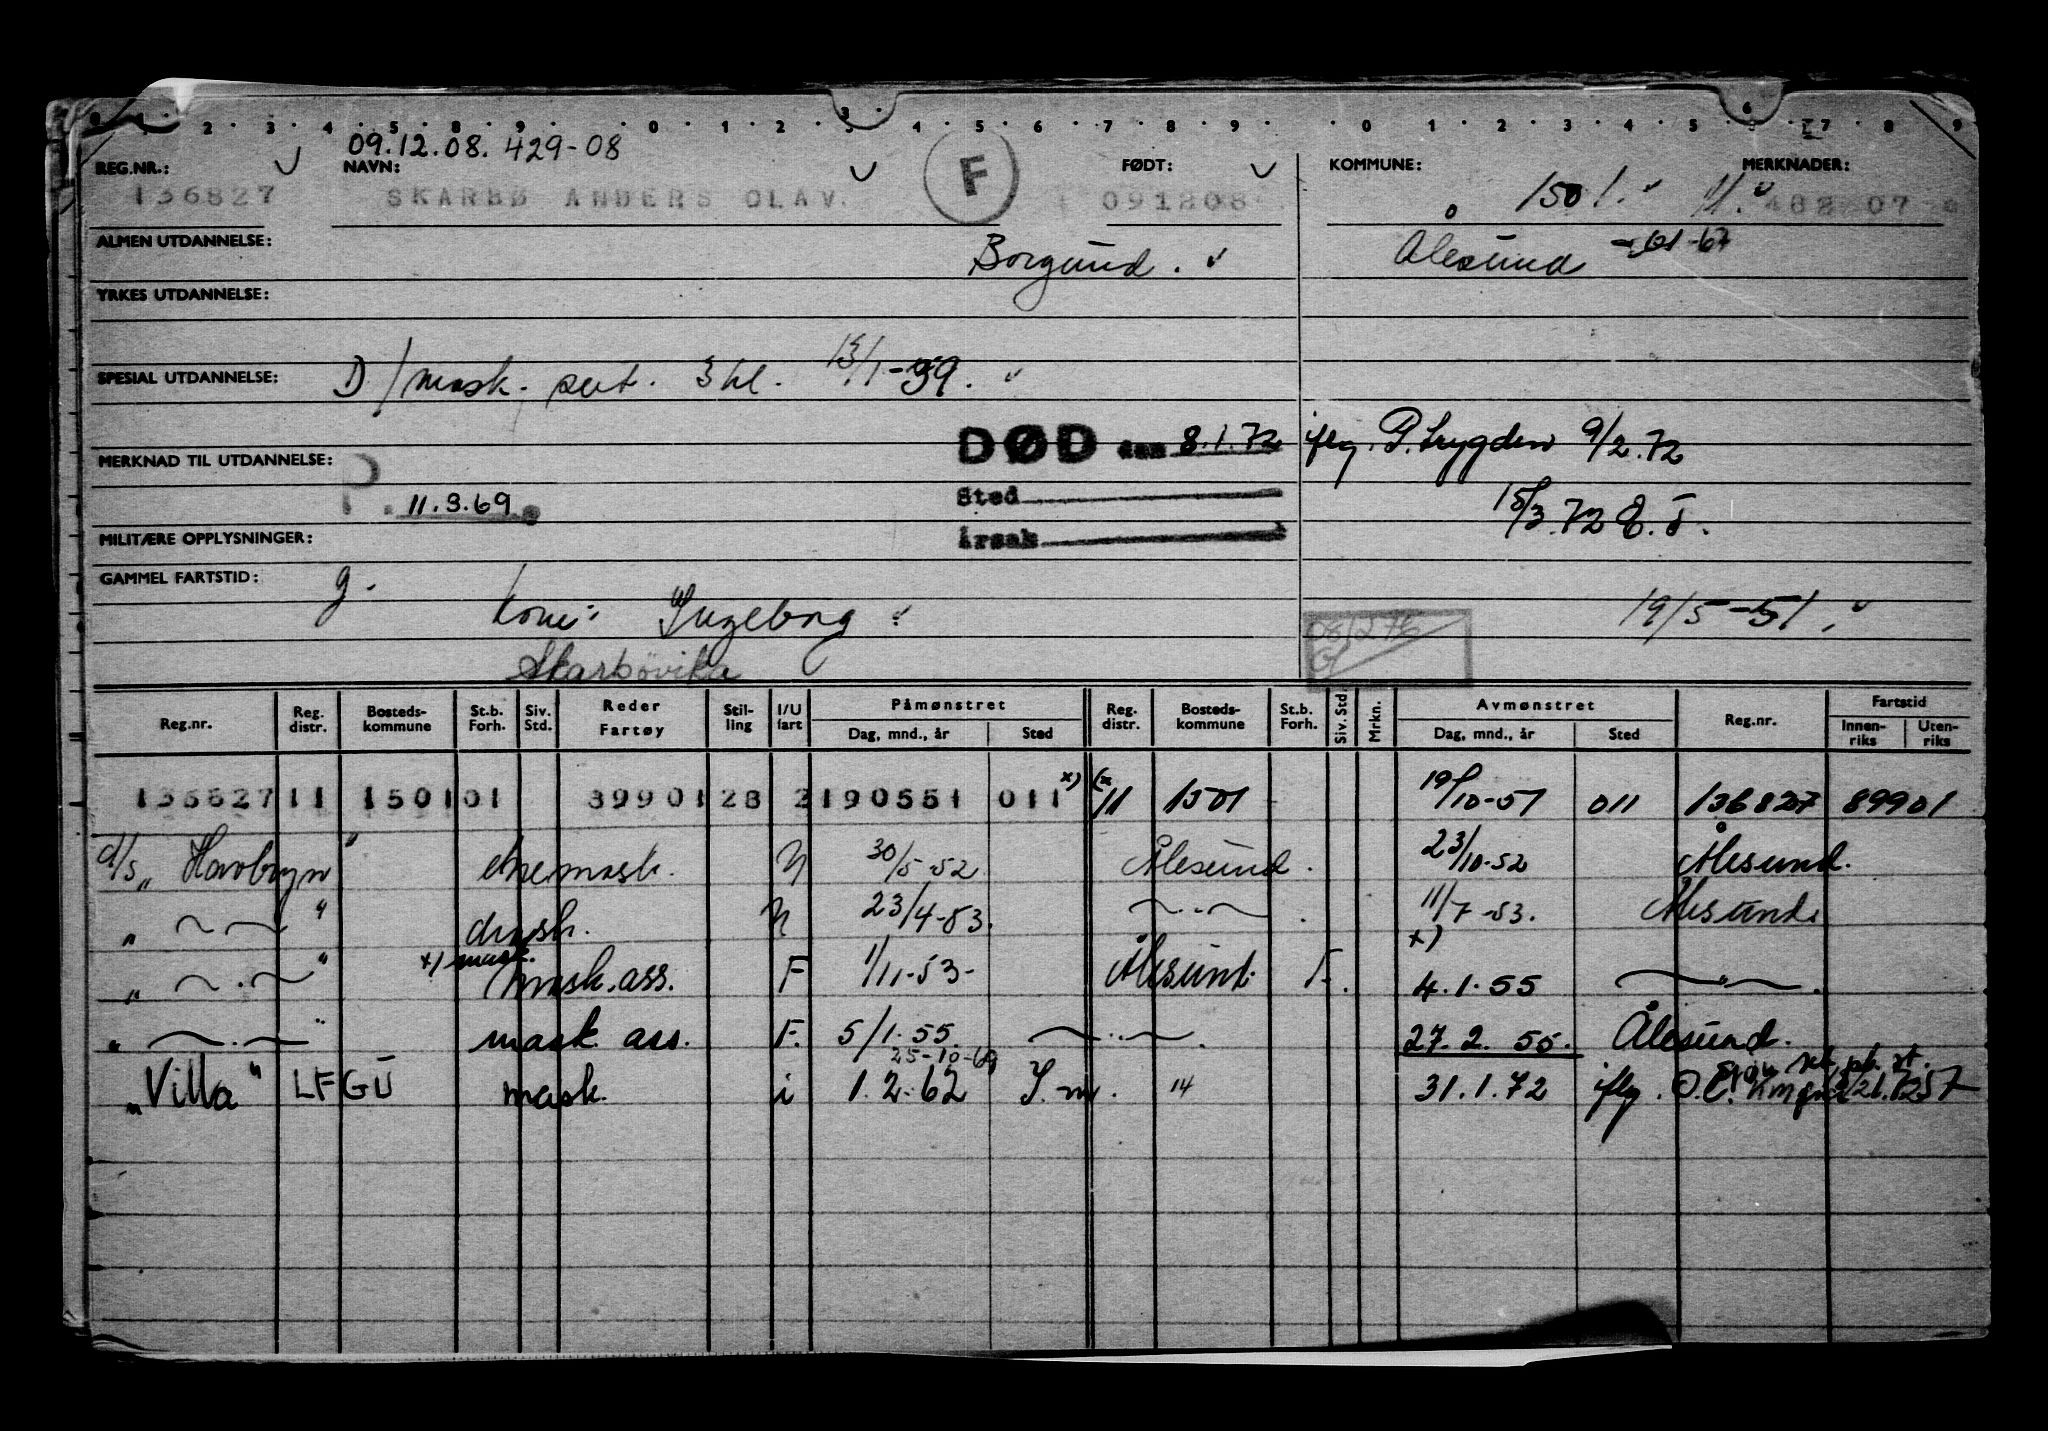 0 1 2 3 4 5 8 9 0 1 2 3 4 5 6 7 8 9 0 1 2 3 4 5 6 7 8 9
09.12.08. 429-08
REG.NR.: NAVN: FØDT: KOMMUNE: MERKNADER:
136827 SKARBØ ANDERS OLAV. F 091208 1501. 11.
ALMEN UTDANNELSE: Borgund. Ålesund -67
YRKES UTDANNELSE:
SPESIAL UTDANNELSE: D/mask. sert. 3 kl. 13/1-39.
DØD den 8.1.72 iflg. P.trygden 9/2.72
MERKNAD TIL UTDANNELSE:
P. 11.3.69. Sted 15/3.72 E.T.
MILITÆRE OPPLYSNINGER: Årsak
GAMMEL FARTSTID: g. Kone: Ingeborg 19/5-51.
Skarbövika
Reg.nr. Reg. distr. Bosteds-kommune St.b. Forh. Siv. Std. Reder Fartøy Stil-ling I/U fart Påmønstret Dag, mnd., år Sted Reg. distr. Bosteds-kommune St.b. Forh. Siv. Std. Mrkn. Avmønstret Dag, mnd., år Sted Reg.nr. Fartstid Innen-riks Uten-riks
136827 11 1501 01 89901 28 2 190551 011 x) (x 11 1501 19/10-51 011 136827 89901
d/s "Havbryn" enemask. N 30/5-52 Ålesund. 23/10-52 Ålesund.
" — " — " dmsk. N 23/4-53. — " — . 11/7-53. Ålesund.
" — . — " x) mask. mask. ass. F 1/11-53- Ålesund. F. x) 4.1.55 — " — .
" — . — " mask ass. F. 5/1.55. — .. — . 27.2.55. Ålesund.
25-10-69
"Villa" LFGU mask. i 1.2.62 S.m. 14 31.1.72 iflg.